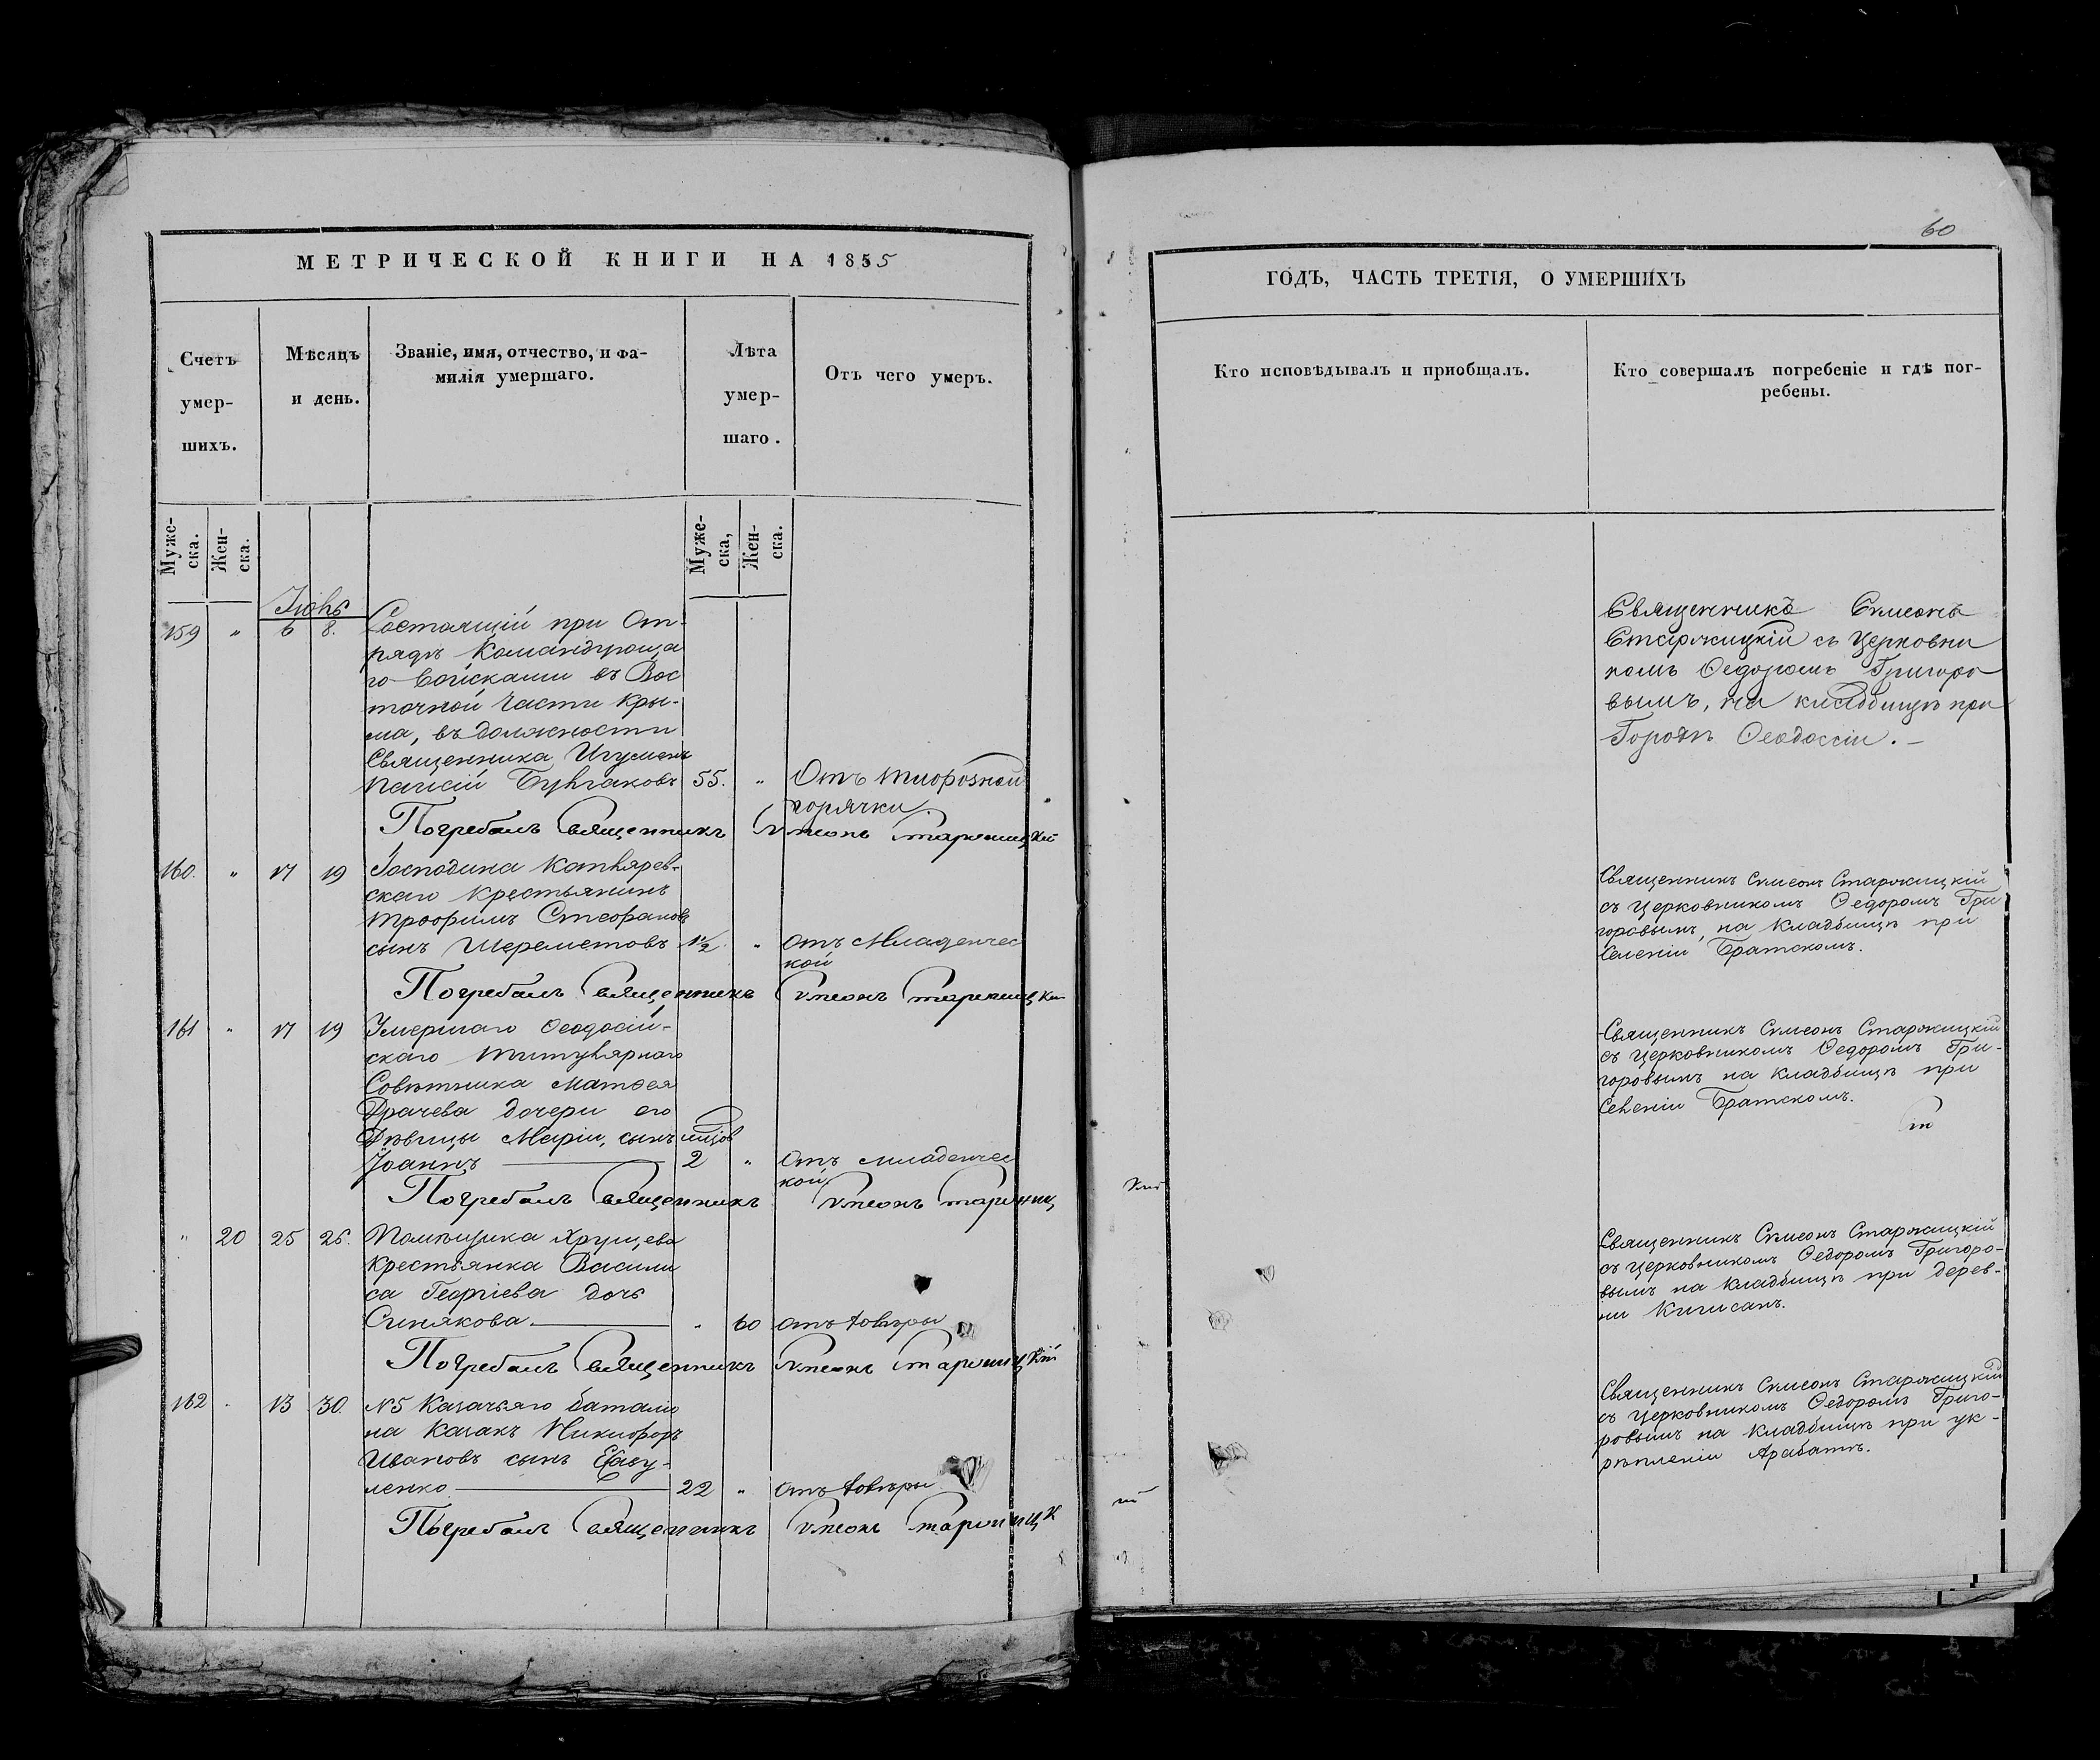 МЕТРИЧЕСКОЙ КНИГИ НА 1855
Счетъ умер-шихъ.
Мѣсяцъ и день.
Званіе, имя, отчество, и фа-
милія умершаго.
Лѣта умер-шаго.
Отъ чего умеръ.
Муже-ска.
Жен-ска.
Муже-ска,
Жен-ска.
Іюнь
159 " 6 8. Состоящій при От-
рядѣ Командующа
го войсками въ Вос
точной части Кры-
ма, въ должности
Священника Игуменъ
Паисій 55. " Отъ тиѳозной
горячки.
Погребалъ Священникъ Сѵмеонъ Старжицкій
160. " 17 19 Господина
скаго Крестьянинъ
Трофимъ Стефановъ
сынъ Шереметовъ 1½ " отъ Младенчес
кой
Погребалъ Священникъ Сѵмеонъ Старжицкій
161 " 17 19 Умершаго Ѳеодосій-
скаго Титулярнаго
Совѣтника Матѳея
Драчева дочери его
Дѣвицы Маріи, сынъ
Іоаннъ 2 " отъ младенчес
кой
Погребалъ Священникъ Сѵмеонъ Старжиц
" 20 25 26. Помѣщика Хрущева
Крестьянка Васили
са Георгіева дочь
Синякова " 60 отъ
Погребалъ Священникъ Сѵмеонъ Старжицкій
162 " 13 30. №5 Казачьяго баталіо
на Казакъ Никифоръ
Ивановъ сынъ
ленко 22 " отъ
Погребалъ Священникъ Сѵмеонъ Старжицк
60
ГОДЪ, ЧАСТЬ ТРЕТІЯ, О УМЕРШИХЪ
Кто исповѣдывалъ и приобщалъ.
Кто совершалъ погребеніе и гдѣ пог-
ребены.
Священникъ Сѵмеонъ
Старжицкій съ Церковни
комъ Ѳедоромъ Григоро
вымъ, на кладбищѣ при
Городѣ Ѳеодосіи.
Священникъ Сѵмеонъ Старжицкій
съ Церковникомъ Ѳедоромъ Гри
горовымъ, на Кладбищѣ при
Селеніи Братскомъ.
Священникъ Сѵмеонъ Старжицкій
съ Церковникомъ Ѳедоромъ Гри-
горовымъ на Кладбищѣ при
Селеніи Братскомъ.
кій
Священникъ Сѵмеонъ Старжицкій
съ Церковникомъ Ѳедоромъ Григоро-
вымъ на Кладбищѣ при дерев-
ни
Священникъ Сѵмеонъ Старжицкій
съ Церковникомъ Ѳедоромъ Григо-
ровымъ на Кладбищѣ при ук-
рѣпленіи Арабатъ.
ій